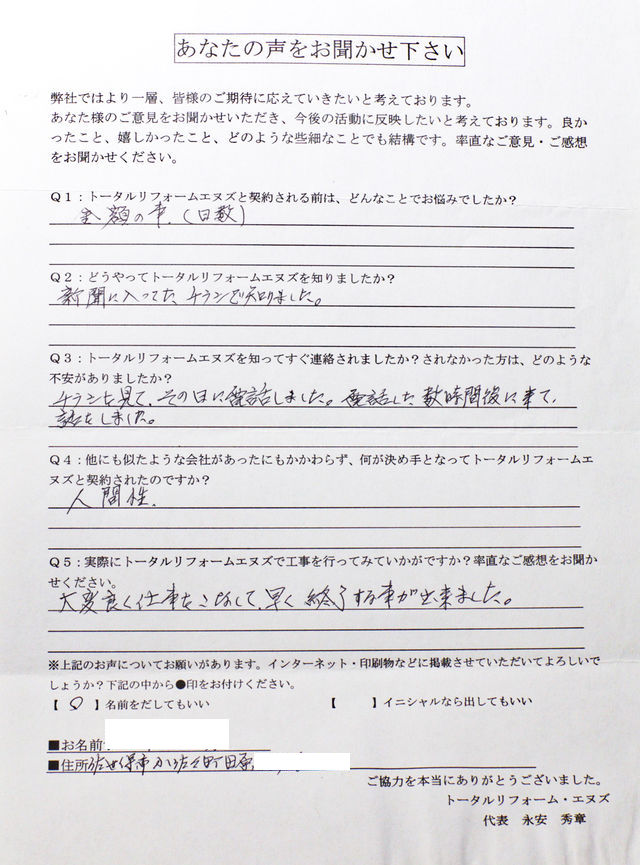 あなたの声をお聞かせ下さい
弊社ではより一層、皆様のご期待に応えていきたいと考えております。
あなた様のご意見をお聞かせいただき、今後の活動に反映したいと考えております。良か
ったこと、嬉しかったこと、どのような些細なことでも結構です。率直なご意見・ご感想
をお聞かせください。
Q1：トータルリフォームエヌズと契約される前は、どんなことでお悩みでしたか？
金額の事.(日数)
Q2：どうやってトータルリフォームエヌズを知りましたか？
新聞に入ってた、チラシで知りました。
Q3：トータルリフォームエヌズを知ってすぐ連絡されましたか？されなかった方は、どのような
不安がありましたか？
チラシを見て、その日に電話しました。電話した数時間後に来て、
話をしました。
Q4：他にも似たような会社があったにもかかわらず、何が決め手となってトータルリフォームエ
ヌズと契約されたのですか？
人間性.
Q5：実際にトータルリフォームエヌズで工事を行ってみていかがですか？率直なご感想をお聞か
せください。
大変良く仕事をこなして、早く終了する事が出来ました。
※上記のお声についてお願いがあります。インターネット・印刷物などに掲載させていただいてよろしいで
しょうか？下記の中から●印をお付けください。
【 ○ 】名前をだしてもいい 【 】イニシャルなら出してもいい
■お名前
■住所 佐世保市
ご協力を本当にありがとうございました。
トータルリフォーム・エヌズ
代表 永安 秀章